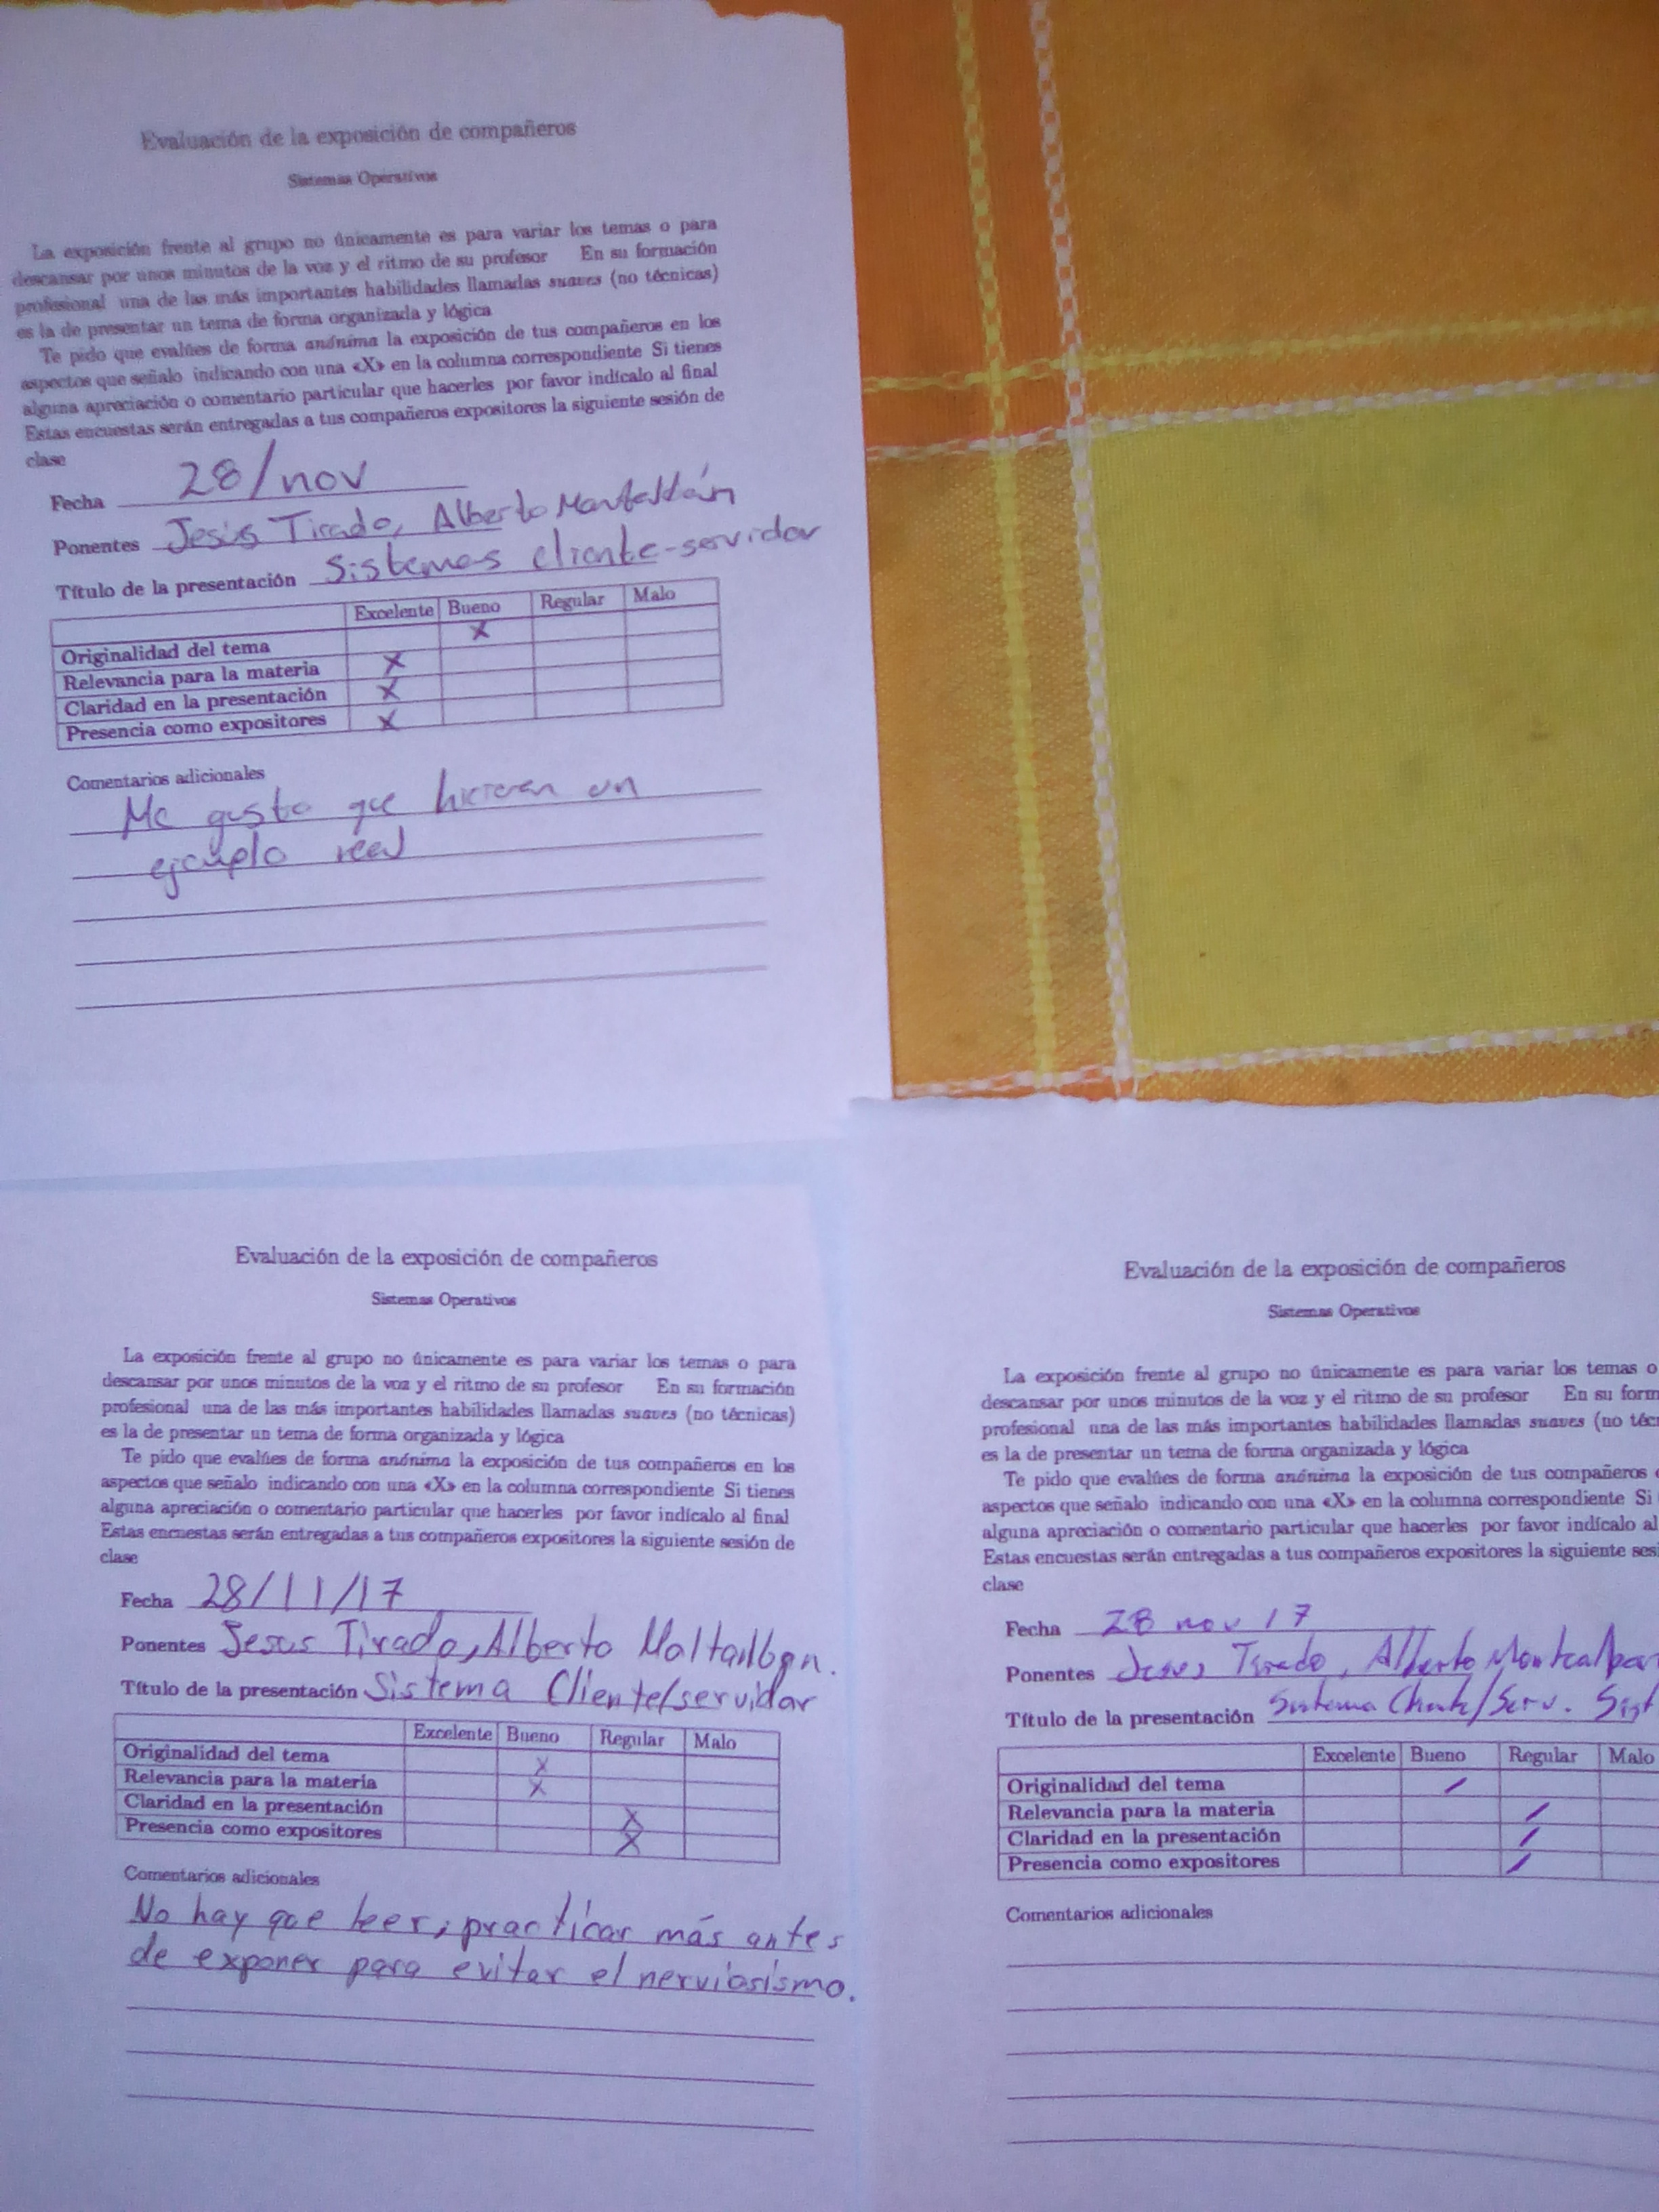 Evaluación de la exposición de compañeros
Sistemas Operativos
La exposición frente al grupo no únicamente es para variar los temas o para
descansar por unos minutos de la voz y el ritmo de su profesor En su formación
profesional una de las más importantes habilidades llamadas suaves (no técnicas)
es la de presentar un tema de forma organizada y lógica
Te pido que evalúes de forma anónima la exposición de tus compañeros en los
aspectos que señalo indicando con una «X» en la columna correspondiente Si tienes
alguna apreciación o comentario particular que hacerles por favor indícalo al final
Estas encuestas serán entregadas a tus compañeros expositores la siguiente sesión de
clase
Fecha 28/nov
Ponentes Jesús Tirado, Alberto
Título de la presentación Sistemas cliente-servidor
Excelente Bueno Regular Malo
Originalidad del tema X
Relevancia para la materia X
Claridad en la presentación X
Presencia como expositores X
Comentarios adicionales
Me gusto que hicieran un
ejemplo real
Evaluación de la exposición de compañeros
Sistemas Operativos
La exposición frente al grupo no únicamente es para variar los temas o para
descansar por unos minutos de la voz y el ritmo de su profesor En su formación
profesional una de las más importantes habilidades llamadas suaves (no técnicas)
es la de presentar un tema de forma organizada y lógica
Te pido que evalúes de forma anónima la exposición de tus compañeros en los
aspectos que señalo indicando con una «X» en la columna correspondiente Si tienes
alguna apreciación o comentario particular que hacerles por favor indícalo al final
Estas encuestas serán entregadas a tus compañeros expositores la siguiente sesión de
clase
Fecha 28/11/17
Ponentes Jesus Tirado, Alberto
Título de la presentación Sistema Cliente/servidor
Excelente Bueno Regular Malo
Originalidad del tema X
Relevancia para la materia X
Claridad en la presentación X
Presencia como expositores X
Comentarios adicionales
No hay que leer, practicar más antes
de exponer para evitar el nerviosismo.
Evaluación de la exposición de compañeros
Sistemas Operativos
La exposición frente al grupo no únicamente es para variar los temas o
descansar por unos minutos de la voz y el ritmo de su profesor En su form
profesional una de las más importantes habilidades llamadas suaves (no téc
es la de presentar un tema de forma organizada y lógica
Te pido que evalúes de forma anónima la exposición de tus compañeros
aspectos que señalo indicando con una «X» en la columna correspondiente Si
alguna apreciación o comentario particular que hacerles por favor indícalo al
Estas encuestas serán entregadas a tus compañeros expositores la siguiente ses
clase
Fecha 28 nov 17
Ponentes Jesus Tirado, Alberto
Título de la presentación Sistema Cliente/Serv. Sist
Excelente Bueno Regular Malo
Originalidad del tema /
Relevancia para la materia /
Claridad en la presentación /
Presencia como expositores /
Comentarios adicionales